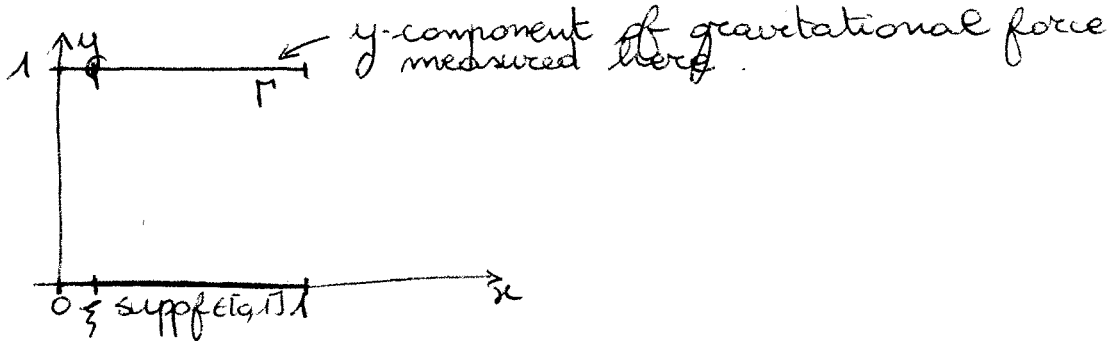 y-component of gravitational force
measured here.
y
1
Γ
0 ξ supp f ∈ [0,1] 1
x